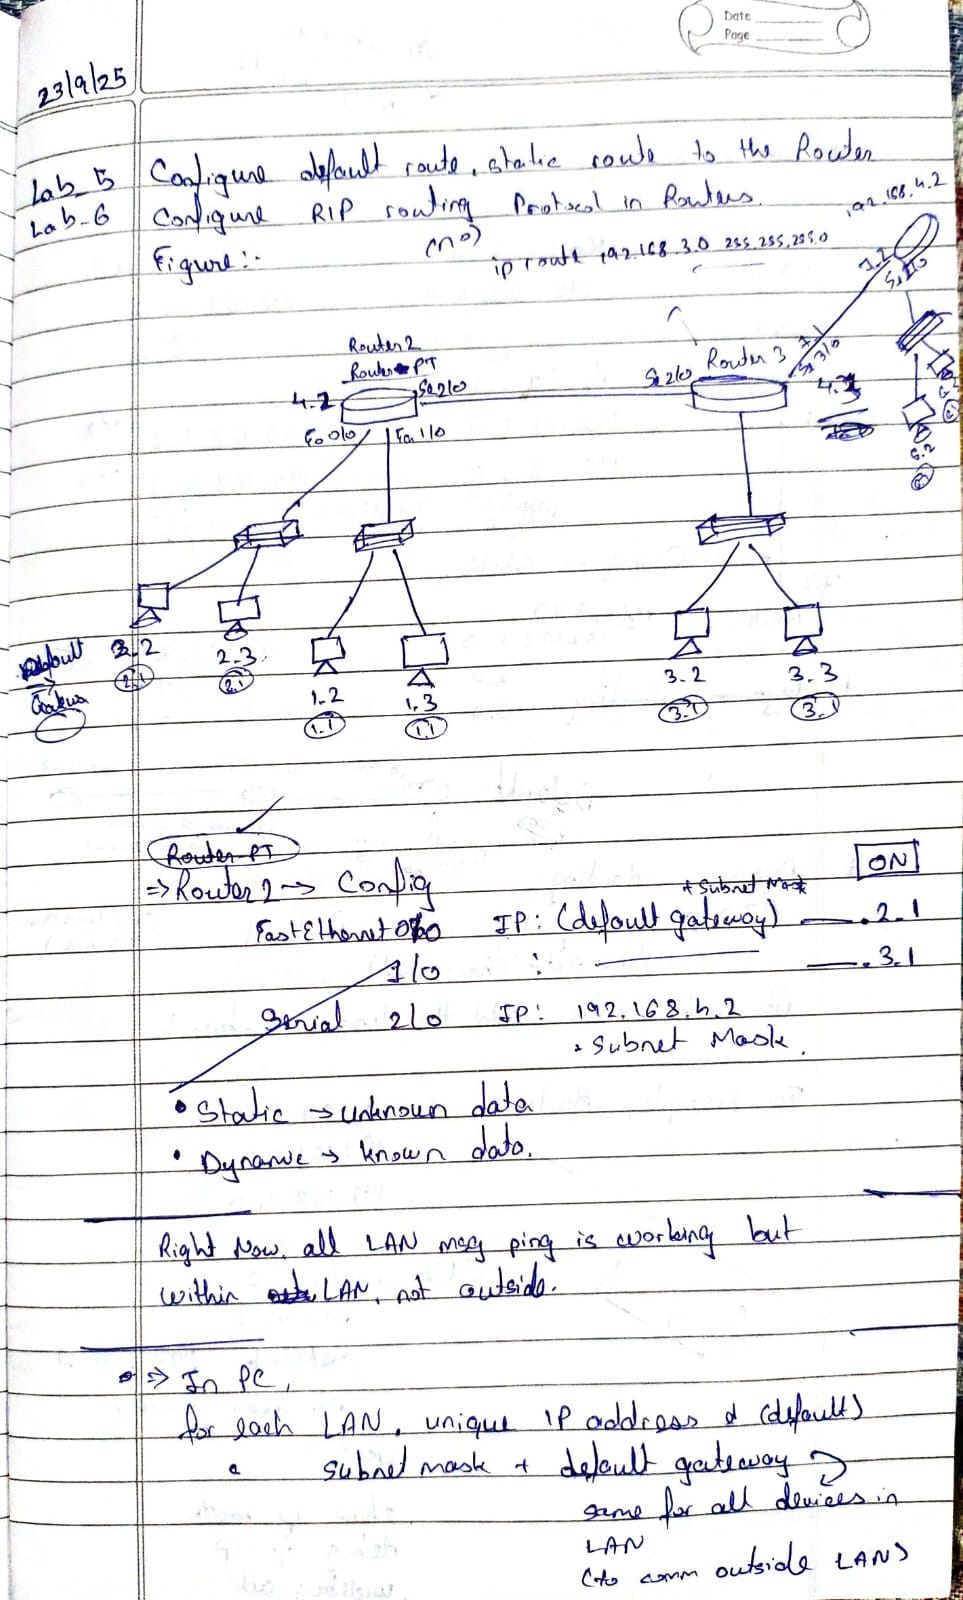 Date
Page
23/9/25
Lab_5 Configure default route, static route to the Router
Lab-6 Configure RIP routing Protocol in Routers.
192.168.4.2
Figure :-
(no)
ip route 192.168.3.0 255.255.255.0
7.2
Router 2
Router-PT
4.2
Se2/0
Fa0/0
Fa1/0
Se2/0
Router 3
7.1
Se3/0
2.2
2.1
2.3
2.1
1.2
1.1
1.3
1.1
3.2
3.1
3.3
3.1
6.2
Default
Router-PT
ON
=> Router 2 → Config
+ Subnet Mask
FastEthernet 0/0 IP: (default gateway) ——. 2.1
1/0 : ——. 3.1
Serial 2/0 IP: 192.168.4.2
+ Subnet Mask.
• Static → unknown data
• Dynamic → known data.
Right Now, all LAN msg ping is working but
within LAN, not outside.
=> In PC,
for each LAN, unique IP address & (default)
subnet mask + default gateway
same for all devices in
LAN
(to comm outside LAN)